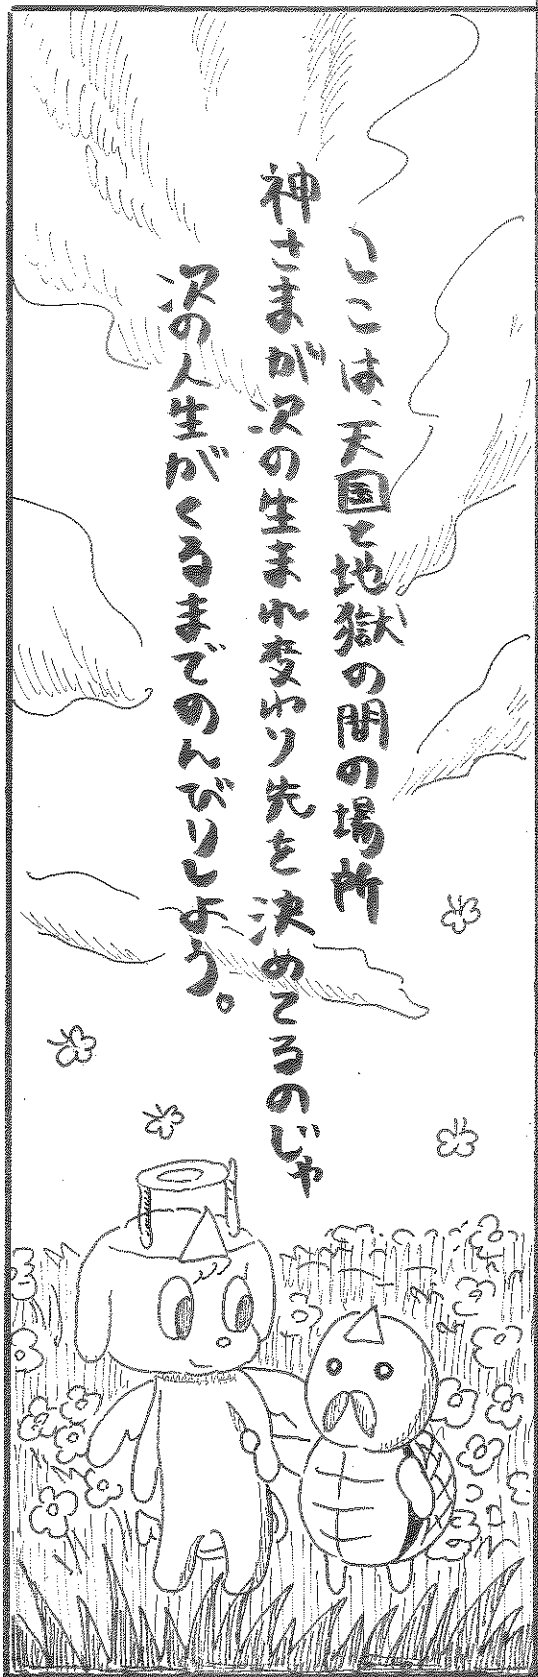 ここは、天国と地獄の間の場所
神さまが次の生まれ変わり先を決めてるのじゃ
次の人生がくるまでのんびりしよう。